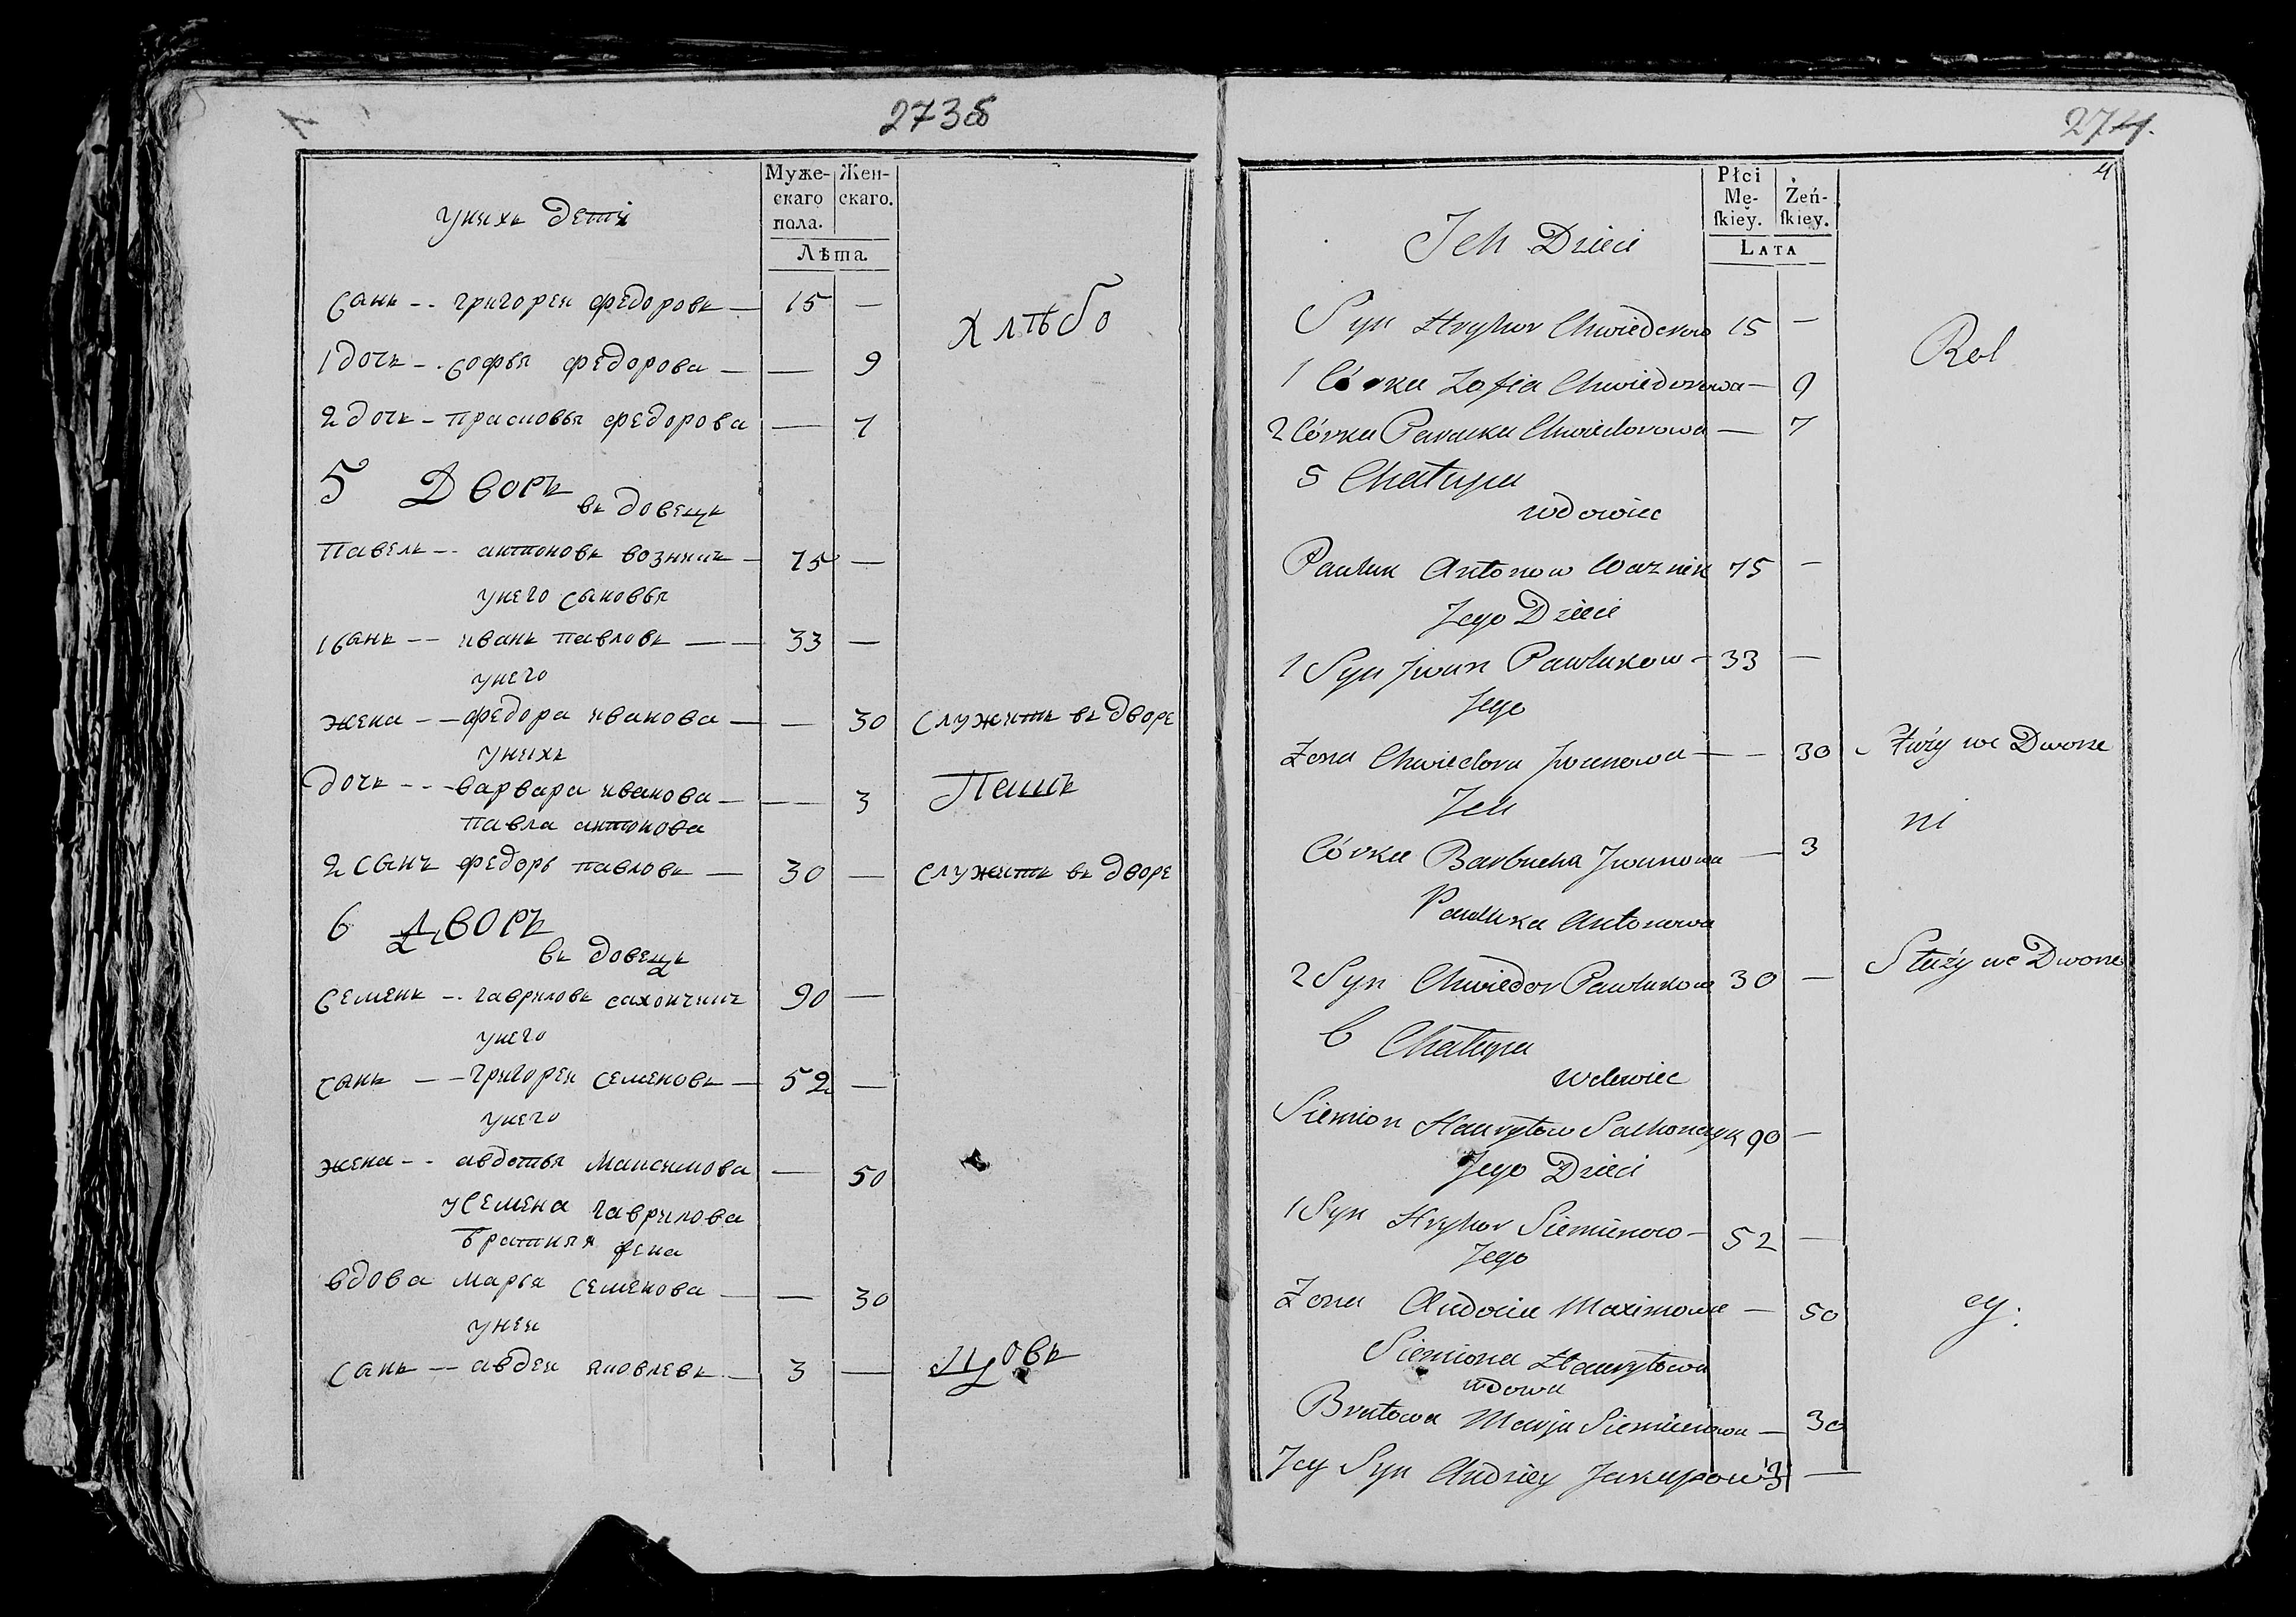 273об
Муже-
скаго
пола.
Жен-
скаго.
Лѣта.
унихъ дети
Санъ -- григореи федоровъ — 15 —
хлѣбо
1 дочь -- Софья федорова — — 9
2 дочь — прасковья федорова — 7
5 Дворъ
въдовецъ
Павелъ -- антоновъ возникъ — 75 —
унего сановья
1 санъ -- иванъ павловъ — 33 —
унего
жена -- федора иванова — — 30 служитъ въ дворе
унихъ
дочь -- варвара иванова — — 3
Пашъ
павла антонова
2 сынъ федоръ павловъ — 30 — служитъ въ дворе
6 Дворъ
въ довецъ
Семенъ -- гавриловъ сахончикъ 90 —
унего
санъ -- григореи семеновъ — 52 —
унего
жена -- авдотья Максимова — 50
уСемена гаврилова
братняя жена
вдова марья семенова — — 30
унеи
санъ -- авдеи яковлевъ — 3 —
цовъ
274.
4
Płci
Mę-
skiey.
Żeń-
skiey.
LATA
Ich Dzieci
Syn Hryhor Chwiedorow 15 —
Rol
1 Córka Zofia Chwiedorowa — 9
2 Córka Paraska Chwiedorowa — 7
5 Chałupa
wdowiec
Pawluk Antonow Waznik 75 —
Jego Dzieci
1 Syn Jwan Pawlukow — 33 —
Jego
Żona Chwiedora Jwanowa — — 30 Służy we Dworze
Ich
ni
Córka Barbucha Jwanowa — 3
Pawluka Antonowa
2 Syn Chwiedor Pawlukow 30 — Służy we Dworze
6 Chałupa
wdowiec
Siemion Hawryłow Sachonczyk 90 —
Jego Dzieci
1 Syn Hryhor Siemienow — 52 —
Jego
Żona Audocia Maximowa — 50
cy.
Siemiona Hawryłowa
wdowa
Bratowa Marja Siemienowa — 30
Jey Syn Audziey Jakupow 3 —